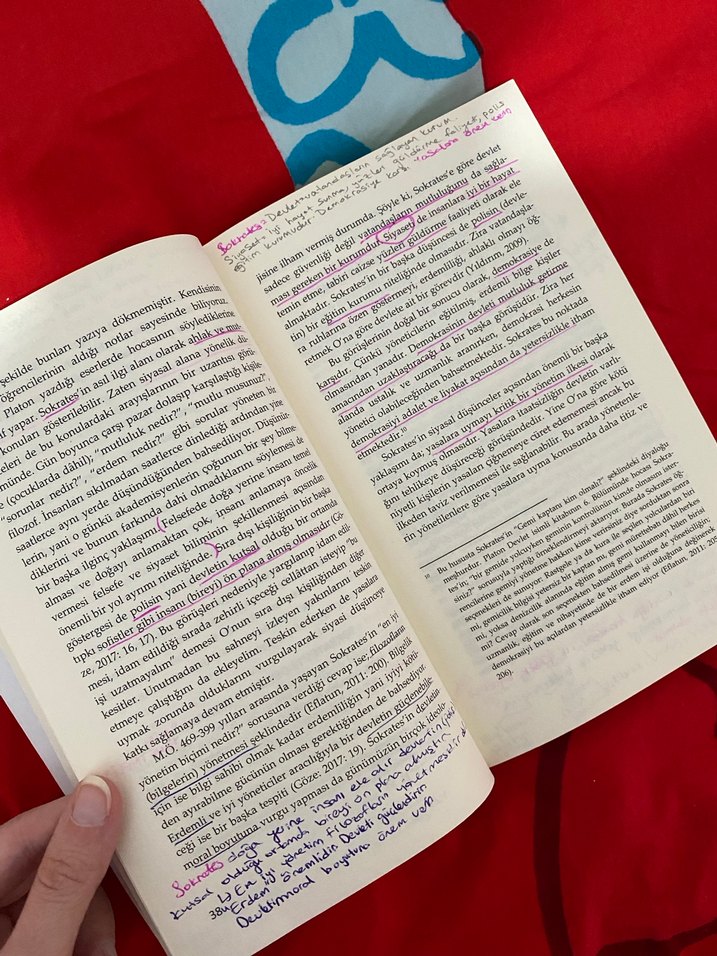 şekilde bunları yazıya dökmemiştir. Kendisinin
öğrencilerinin aldığı notlar sayesinde biliyoruz.
Platon yazdığı eserlerde hocasının söylediklerine
f yapar. Sokrates'in asıl ilgi alanı olarak ahlak ve
konuları gösterilebilir. Zaten siyasal alana yönelik dü-
eleri de bu konulardaki arayışlarının bir uzantısı görü-
münde: Gün boyunca çarşı pazar dolaşıp karşılaştığı kişile-
e (çocuklarda dâhil); "mutluluk nedir?", "mutlu musunuz?",
"sorunlar nedir?", "erdem nedir?" gibi sorular yönelten bir
filozof. İnsanları sıkılmadan saatlerce dinlediği ardından yine
saatlerce aynı yerde düşündüğünden bahsediliyor. Düşünür-
lerin, yani o günkü akademisyenlerin çoğunun bir şey bilme-
diklerini ve bunun farkında dahi olmadıklarını söylemesi de
bir başka ilginç yaklaşımı. Felsefede doğa yerine insanı temel
alması ve doğayı anlamaktan çok, insanı anlamaya öncelik
vermesi felsefe ve siyaset bilimin şekillenmesi açısından
önemli bir yol ayrımı niteliğinde. Sıra dışı kişiliğinin bir başka
göstergesi de polisin yani devletin kutsal olduğu bir ortamda
tıpkı sofistler gibi insanı (bireyi) ön plana almış olmasıdır (Gö-
ze, 2017: 16, 17). Bu görüşleri nedeniyle yargılanıp idam edil-
mesi, idam edildiği sırada zehirli içeceği cellâttan isteyip "bu
işi uzatmayalım" demesi O'nun sıra dışı kişiliğinden diğer
kesitler. Unutmadan bu sahneyi izleyen yakınlarını teskin
etmeye çalıştığını da ekleyelim. Teskin ederken de yasalara
uymak zorunda olduklarını vurgulayarak siyasi düşünceye
katkı sağlamaya devam etmiştir.
M.Ö. 469-399 yılları arasında yaşayan Sokrates'in "en iyi
yönetim biçimi nedir?" sorusuna verdiği cevap ise; filozofların
(bilgelerin) yönetmesi şeklindedir (Eflatun, 2011: 200). Bilgelik
için ise bilgi sahibi olmak kadar erdemliliğin yani iyiyi kötü-
den ayırabilme gücünün olması gerektiğinden de bahsediyor.
Erdemli ve iyi yöneticiler aracılığıyla bir devletin güçlenebile-
ceği ise bir başka tespiti (Göze: 2017: 19). Sokrates'in devletin
moral boyutuna vurgu yapması da günümüzün birçok ideolo-
Sokrates doğa yerine insanı ele alır devletin
kutsal olduğu ortamda bireyi ön plana almıştır.
↳ En iyi yönetim filozofların yönetmesidir
38 Erdem önemlidir. Devleti güçlendirir.
Devletin moral boyutuna önem verir
Sokrates: Devlet=vatandaşların sağlayan kurum.
Siyaset= iyi hayat sunma, yüzleri güldürme faliyeti, polis
eğitim kurumudur. Demokrasiye karşı. Yasalara önem verir
jisine ilham vermiş durumda. Şöyle ki, Sokrates'e göre devlet
sadece güvenliği değil vatandaşların mutluluğunu da sağla-
ması gereken bir kurumdur. Siyaset de insanlara iyi bir hayat
temin etme, tabiri caizse yüzleri güldürme faaliyeti olarak ele
almaktadır. Sokrates'in bir başka düşüncesi de Polisin (devle-
tin) bir eğitim kurumu niteliğinde olmasıdır. Zira vatandaşla-
ra ruhlarına özen göstermeyi, erdemliliği, ahlaklı olmayı öğ-
retmek O'na göre devlete ait bir görevdir (Yıldırım, 2009).
Bu görüşlerinin doğal bir sonucu olarak, demokrasiye de
karşıdır. Çünkü yöneticilerin eğitilmiş, erdemli bilge kişiler
olmasından yanadır. Demokrasinin devleti mutluluk getirme
amacından uzaklaştıracağı da bir başka görüşüdür. Zira her
alanda ustalık ve uzmanlık aranırken, demokrasi herkesin
yönetici olabileceğinden bahsetmektedir. Sokrates bu noktada
demokrasiyi adalet ve liyakat açısından da yetersizlikle itham
etmektedir.¹⁰
Sokrates'in siyasal düşünceler açısından önemli bir başka
yaklaşımı da; yasalara uymayı kritik bir yönetim ilkesi olarak
ortaya koymuş olmasıdır. Yasalara itaatsizliğin devletin varlı-
ğını tehlikeye düşüreceği görüşündedir. Yine O'na göre kötü
niyetli kişilerin yasaları çiğnemeye cüret edememesi ancak bu
ilkeden taviz verilmemesi ile sağlanabilir. Bu arada yönetenle-
rin yönetilenlere göre yasalara uyma konusunda daha titiz ve
¹⁰ Bu hususta Sokrates'in "Gemi kaptanı kim olmalı?" şeklindeki diyaloğu
meşhurdur. Platon Devlet isimli kitabının 6. Bölümünde hocası Sokra-
tes'in, "bir gemide yolcuyken geminin kontrolünün kimde olmasını ister-
siniz?" sorusuyla yaptığı örneklendirmeyi aktarıyor. Burada Sokrates öğ-
rencilerine gemiyi yönetme hakkını kime verirsiniz diye sorduktan sonra
seçenekleri de sunuyor. Rastgele ya da kura ile seçilen yolculardan biri
mi, gemicilik bilgisi yüksek bir kaptan mı, gemi mürettebatı dâhil herkes
mi, yoksa denizcilik alanında eğitim almış gemi kullanmayı bilen biri
mi? Cevap olarak son seçenekten bahsedilmesi üzerine de yöneticiliğin;
uzmanlık, eğitim ve nihayetinde de bir erdem işi olduğuna değinerek
demokrasiyi bu açılardan yetersizlikle itham ediyor (Eflatun, 2011: 204-
206).